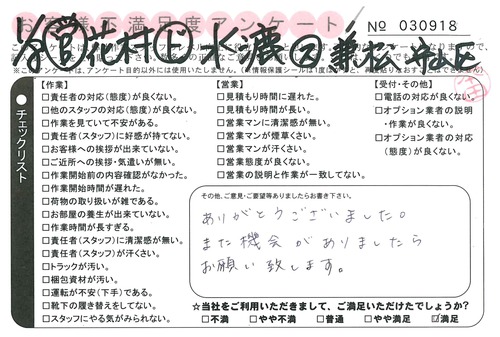 お客様不満足度アンケート
№ 030918
チェックリスト
【作業】
□責任者の対応(態度)が良くない。
□他のスタッフの対応(態度)が良くない。
□作業を見ていて不安がある。
□責任者(スタッフ)に好感が持てない。
□お客様への挨拶が出来ていない。
□ご近所への挨拶・気遣いが無い。
□作業開始前の内容確認がなかった。
□作業開始時間が遅れた。
□荷物の取り扱いが雑である。
□お部屋の養生が出来ていない。
□作業時間が長すぎる。
□責任者(スタッフ)に清潔感が無い。
□責任者(スタッフ)が汗くさい。
□トラックが汚い。
□梱包資材が汚い。
□運転が不安(下手)である。
□靴下の履き替えをしてない。
□スタッフにやる気がみられない。
【営業】
□見積もり時間に遅れた。
□見積もり時間が長い。
□営業マンに清潔感が無い。
□営業マンが煙草くさい。
□営業マンが汗くさい。
□営業態度が良くない。
□営業の説明と作業が一致してない。
【受付・その他】
□電話の対応が良くない。
□オプション業者の説明
・作業が良くない。
□オプション業者の対応
(態度)が良くない。
その他、ご意見・ご要望等ありましたらお書き下さい。
ありがとうございました。
また機会がありましたら
お願い致します。
☆当社をご利用いただきまして、ご満足いただけたでしょうか?
□不満 □やや不満 □普通 □やや満足 ☑満足